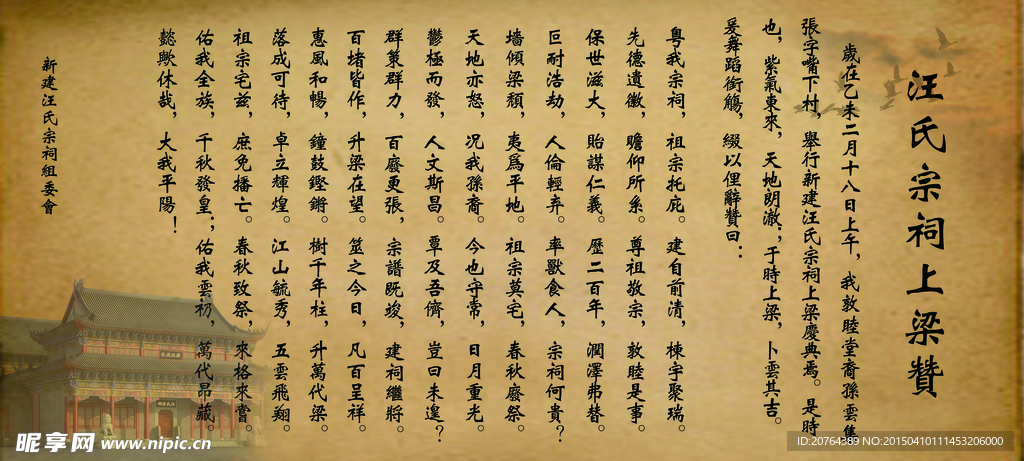 汪氏宗祠上梁贊
歲在乙未二月十八日上午，我敦睦堂裔孫雲集
張字嘴下村，舉行新建汪氏宗祠上梁慶典焉。是時
也，紫氣東來，天地朗澈；于時上梁，卜雲其吉。
爰舞蹈銜觴，綴以俚辭贊曰：
粵我宗祠，祖宗托庇。建自前清，棟宇聚瑞。
先德遺徽，瞻仰所系。尊祖敬宗，敦睦是事。
保世滋大，貽謀仁義。歷二百年，潤澤弗替。
叵耐浩劫，人倫輕弃。率獸食人，宗祠何貴？
墻傾梁頹，夷爲平地。祖宗莫宅，春秋廢祭。
天地亦怒，况我孫裔。今也守常，日月重光。
鬱極而發，人文斯昌。覃及吾儕，豈曰未遑？
群策群力，百廢更張，宗譜既竣，建祠繼將。
百堵皆作，升梁在望。筮之今日，凡百呈祥。
惠風和暢，鐘鼓鏗鏘。樹千年柱，升萬代梁。
落成可待，卓立輝煌。江山毓秀，五雲飛翔。
祖宗宅兹，庶免播亡。春秋致祭，來格來嘗。
佑我全族，千秋發皇；佑我雲礽，萬代昂藏。
懿歟休哉，大我平陽！
新建汪氏宗祠組委會
昵享网 www.nipic.cn
ID:20764389 NO:20150410111453206000